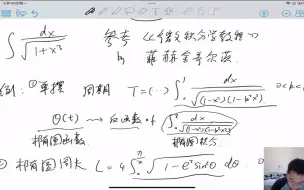 ∫ dx/√(1+x³) 参考 《微积分学教程》
by 菲赫金哥尔茨
例: ① 单摆 周期 T=(…)∫₀¹ dx/√((1-x²)(1-k²x²)) 0<k<1
θ(t) → 反函数 of ∫₀ dx/√((1-x²)(1-k²x²))
椭圆函数 椭圆积分
② 椭圆周长 L = 4∫₀^(π/2) √(1-e²sin²θ) dθ.